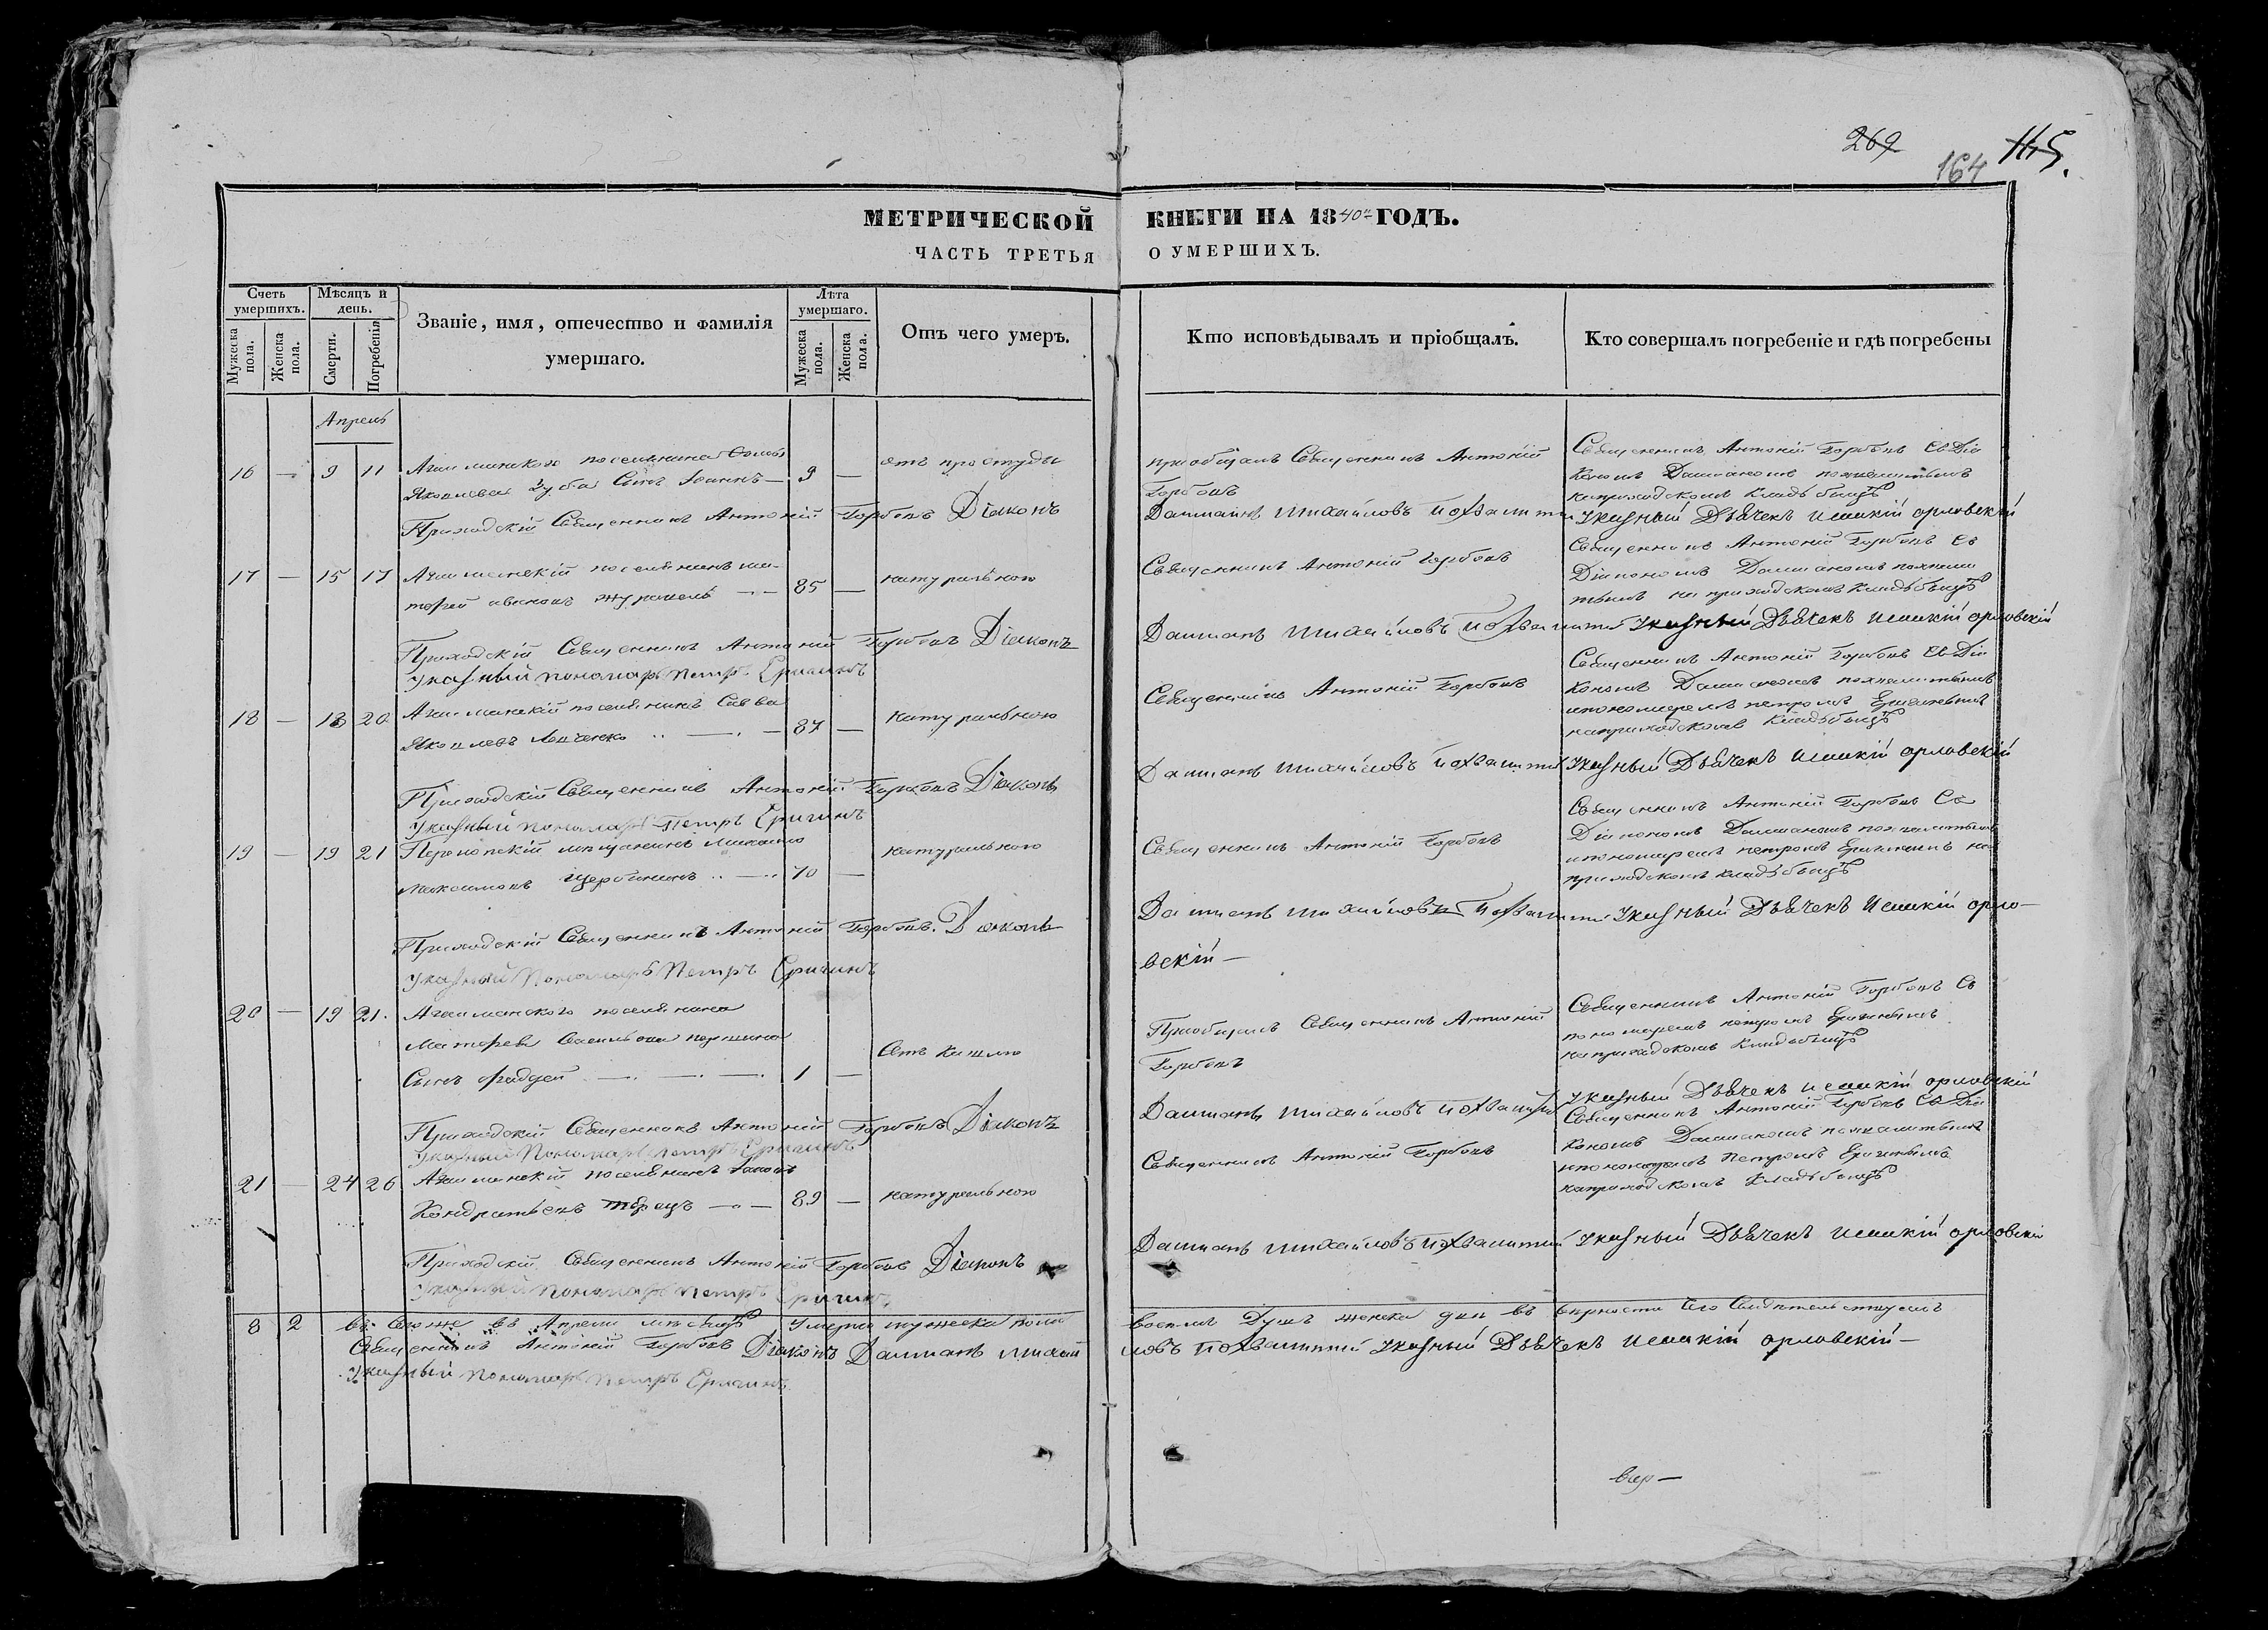 269
164
115.
МЕТРИЧЕСКОЙ КНИГИ НА 1840й ГОДЪ.
ЧАСТЬ ТРЕТЬЯ О УМЕРШИХЪ.
Счетъ умершихъ.
Мужеска пола.
Женска пола.
Мѣсяцъ и день.
Смерти.
Погребенія
Званіе, имя, отечество и фамилія умершаго.
Лѣта умершаго.
Мужеска пола.
Женска пола.
Отъ чего умеръ.
Кто исповѣдывалъ и пріобщалъ.
Кто совершалъ погребеніе и гдѣ погребены
Апрель
16 — 9 11 Агайманского поселянина
Яковлева Зуба Сынъ Іоаннъ — 9 — отъ простуды
пріобщалъ Священникъ Антоній
Горбовъ
Священникъ Антоній Горбовъ съ Діа
кономъ Даміаномъ
на приходскомъ кладбищѣ
Приходскій Священникъ Антоній Горбовъ Діаконъ
Даміанъ Михайловъ Похвалитый Указный Дьячекъ Іоанкій Орловскій
17 — 15 17 Агайманскій поселянинъ
Ивановъ Журавель — 85 — натуральною
Священникъ Антоній Горбовъ
Священникъ Антоній Горбовъ съ
Діакономъ Даміаномъ Похвали
тымъ на приходскомъ кладбищѣ
Приходскій Священникъ Антоній Горбовъ Діаконъ
Даміанъ Михайловъ Похвалитый Указный Дьячекъ Іоанкій Орловскій
Указный Пономарь Петръ Еригинъ
18 — 18 20 Агайманскій поселянинъ Савва
Яковлевъ — 87 — натуральною
Священникъ Антоній Горбовъ
Священникъ Антоній Горбовъ съ Діа
кономъ Даміаномъ Похвалитымъ
и пономаремъ Петромъ Еригинымъ
на приходскомъ кладбищѣ
Приходскій Священникъ Антоній Горбовъ Діаконъ
Даміанъ Михайловъ Похвалитый Указный Дьячекъ Іоанкій Орловскій
Указный Пономарь Петръ Еригинъ
19 — 19 21 Перекопскій мѣщанинъ
Максимовъ Щербининъ — 70 — натуральною
Священникъ Антоній Горбовъ
Священникъ Антоній Горбовъ съ
Діакономъ Даміаномъ Похвалитымъ
и пономаремъ Петромъ Еригинымъ на
приходскомъ кладбищѣ
Приходскій Священникъ Антоній Горбовъ. Діаконъ
Даміанъ Михайловъ Похвалитый Указный Дьячекъ Іоанкій Орло-
вскій —
Указный Пономарь Петръ Еригинъ
20 — 19 21. Агайманского поселянина
Васильева
Сынъ Фаддей — 1 — Отъ кашлю
Пріобщалъ Священникъ Антоній
Горбовъ
Священникъ Антоній Горбовъ съ
пономаремъ Петромъ Еригинымъ
на приходскомъ кладбищѣ
Приходскій Священникъ Антоній Горбовъ Діаконъ
Даміанъ Михайловъ Похвалитый Указный Дьячекъ Іоанкій Орловскій
Указный Пономарь Петръ Еригинъ
21 — 24 26 Агайманскій поселянинъ
Кондратьевъ — 89 — натуральною
Священникъ Антоній Горбовъ
Священникъ Антоній Горбовъ съ Діа
кономъ Даміаномъ Похвалитымъ
и пономаремъ Петромъ Еригинымъ
на приходскомъ кладбищѣ
Приходскій Священникъ Антоній Горбовъ Діаконъ
Даміанъ Михайловъ Похвалитый Указный Дьячекъ Іоанкій Орловскій
Указный Пономарь Петръ Еригинъ
8 2 въ Апрели мѣсяцѣ умерло мужеска пола
восемъ душъ женска два въ верности чего свидѣтельствуемъ
Священникъ Антоній Горбовъ Діаконъ Даміанъ Михай
ловъ Похвалитый Указный Дьячекъ Іоанкій Орловскій —
Указный Пономарь Петръ Еригинъ